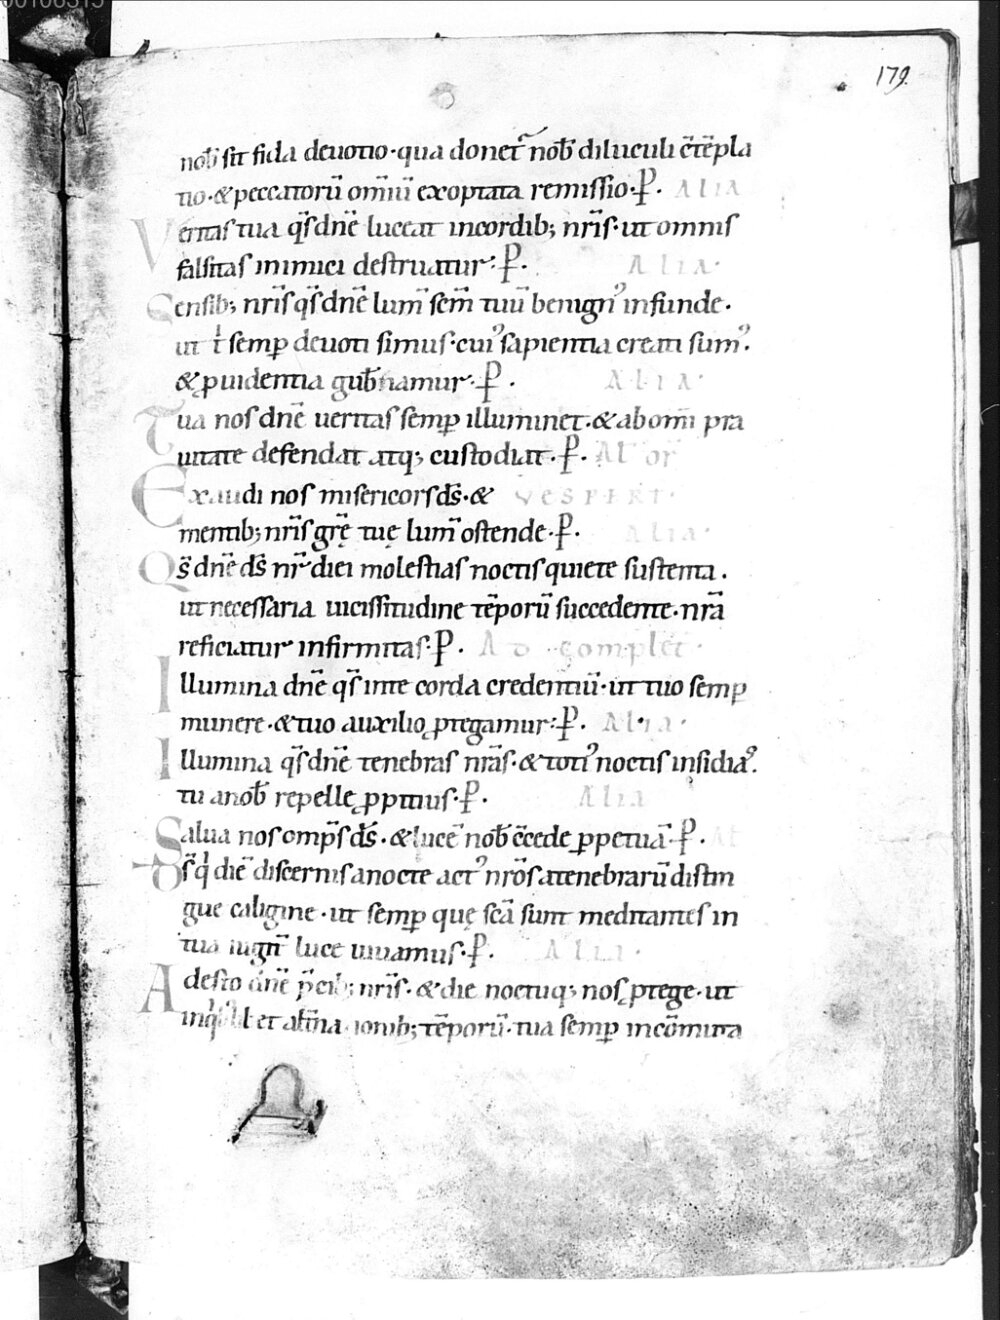 00100515
179.
nob̄ sit fida deuotio·qua donet̄ nob̄ diluculi c̄tēpla
tio·&peccatorū omīū exoptata remissio·P. ALIA
Veritas tua q̄s dn̄e luceat incordib; nr̄is·ut omnis
falsitas inimici destruatur·P. ALIA·
Sensib; nr̄is q̄s dn̄e lum̄ sc̄m tuū benignꝰ infunde·
ut t̄ semꝑ deuoti simus·cuiꝰ sapientia creati sumꝰ·
&ꝓuidentia gub̄namur·P. ALIA·
Tua nos dn̄e ueritas semꝑ illuminet·&abom̄i pra
uitate defendat atq; custodiat·P. AL or
Exaudi nos misericors ds̄·& VESPERT·
mentib; nr̄is gr̄ę tuę lum̄ ostende·P. ALIA·
Qs̄ dn̄e ds̄ nr̄ diei molestias noctis quiete sustenta·
ut necessaria uicissitudine tēporū succedente·nr̄a
reficiatur infirmitas·P. AD complet·
Illumina dn̄e q̄s inte corda credentiū·ut tuo semꝑ
munere·&tuo auxilio ꝓtegamur·P. ALIA·
Illumina q̄s dn̄e tenebras nr̄as·&totiꝰ noctis insidiaꝰ·
tu anob̄ repelle ꝓpitius·P. ALIA
Salua nos omps̄ ds̄·&lucē nob̄ c̄cede ꝑpetuā·P.
Ds̄ qͥ diē discernis anocte actꝰ nr̄os atenebrarū distin
gue caligine·ut semꝑ quę sc̄a sunt meditantes in
tua iugit̄ luce uiuamus·P. ALIA·
Adesto dn̄e p̄cib; nr̄is·&die noctuq; nos ꝓtege·ut
tēporū·tua semꝑ incōmuta